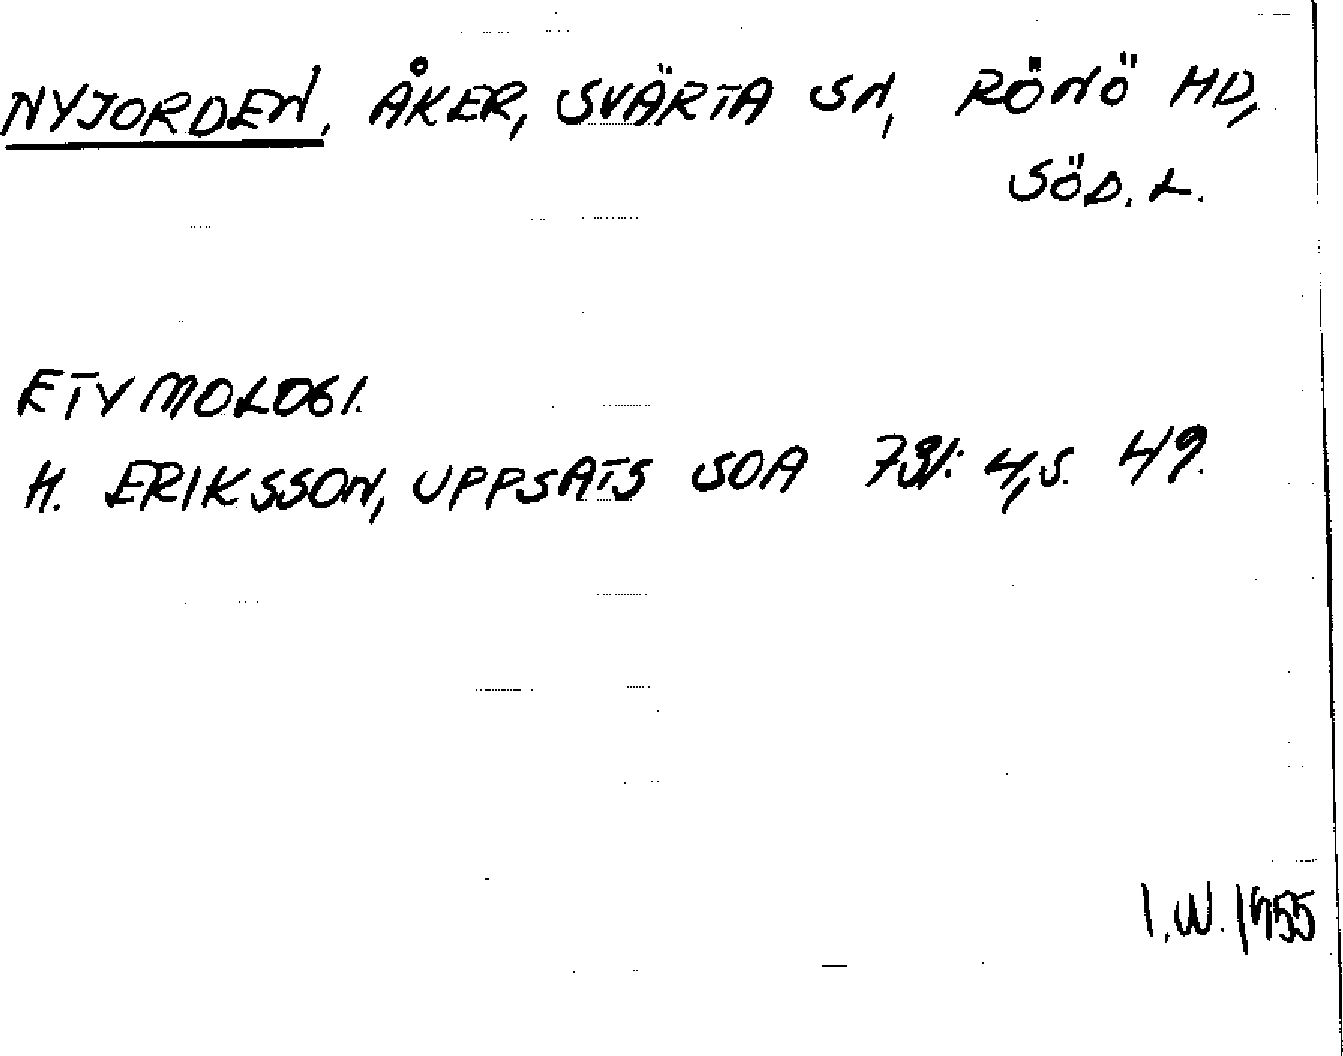 NYJORDEN, ÅKER, SVÄRTA SN, RÖNÖ HD,
SÖD. L.
ETYMOLOGI.
H. ERIKSSON, UPPSATS SOA 731: 4, S. 49.
I.W. 1955